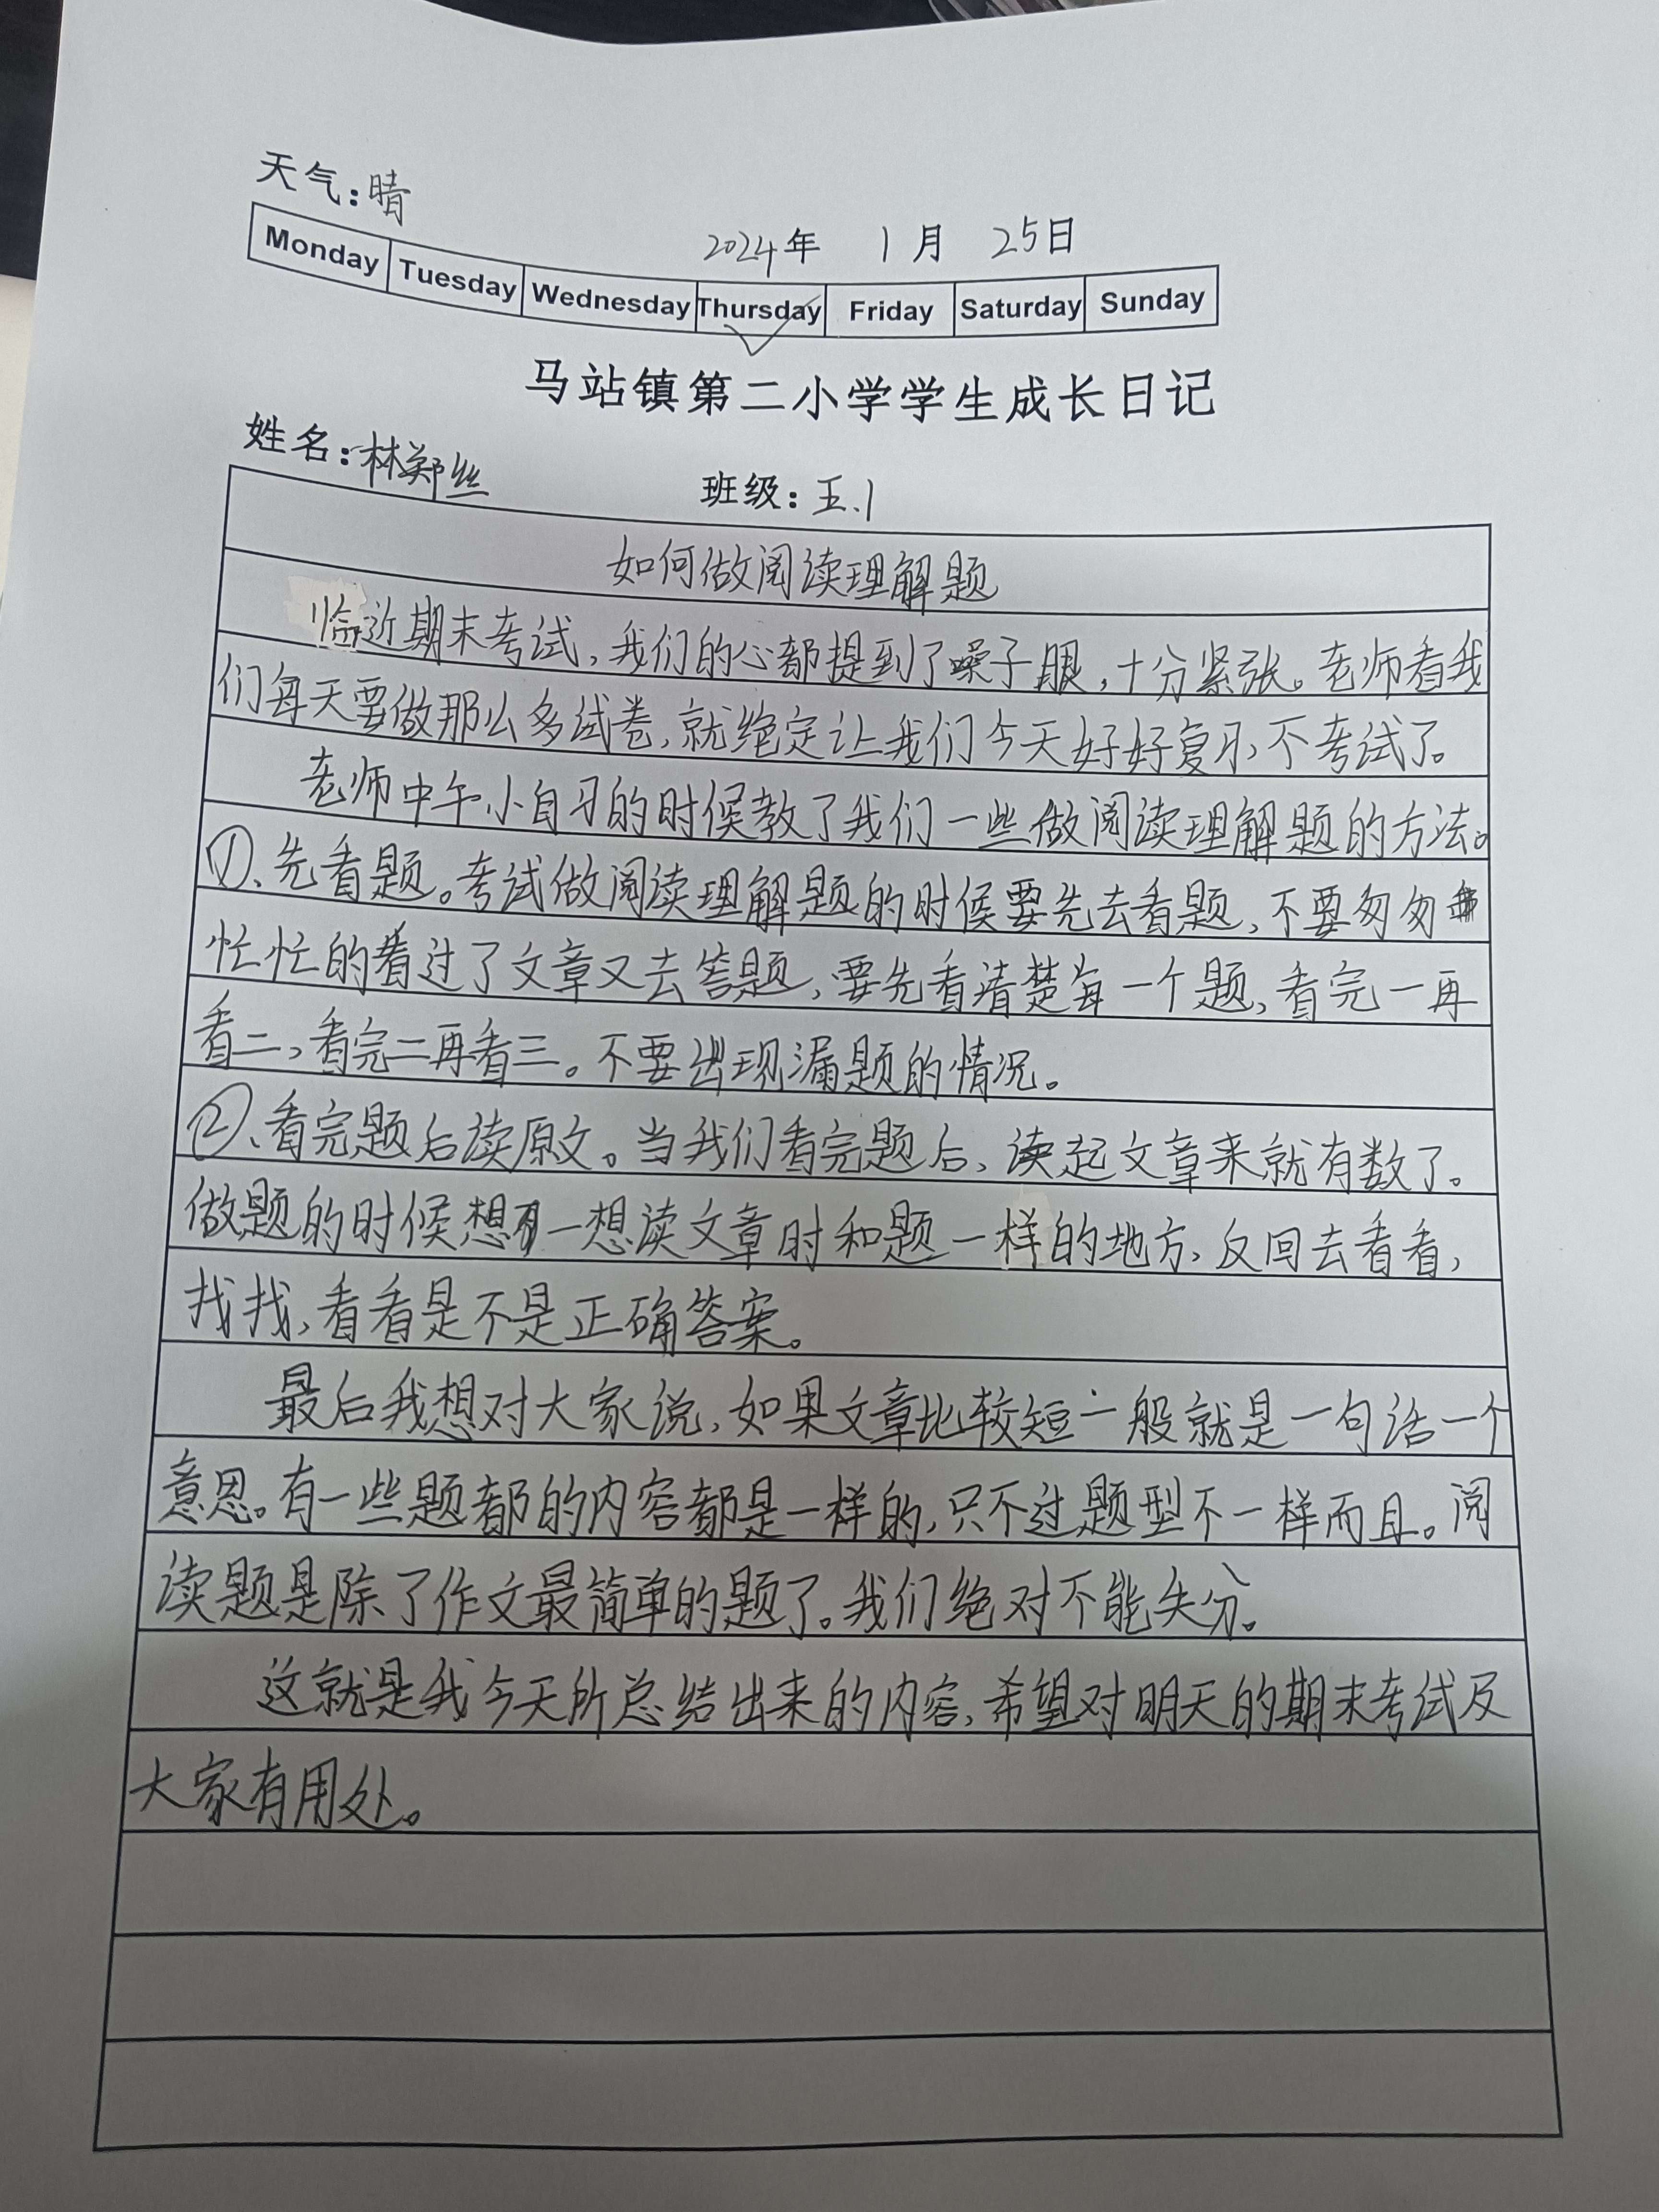 天气：晴
2024年 1月 25日
Monday Tuesday Wednesday Thursday Friday Saturday Sunday
马站镇第二小学学生成长日记
姓名：林郑丝 班级：五.1
如何做阅读理解题
临近期末考试，我们的心都提到了嗓子眼，十分紧张。老师看我
们每天要做那么多试卷，就绝定让我们今天好好复习，不考试了。
老师中午小自习的时候教了我们一些做阅读理解题的方法。
①、先看题。考试做阅读理解题的时候要先去看题，不要匆匆
忙忙的看过了文章又去答题，要先看清楚每一个题，看完一再
看二，看完二再看三。不要出现漏题的情况。
②、看完题后读原文。当我们看完题后，读起文章来就有数了。
做题的时候想一想读文章时和题一样的地方，反回去看看，
找找，看看是不是正确答案。
最后我想对大家说，如果文章比较短一般就是一句话一个
意思。有一些题都的内容都是一样的，只不过题型不一样而且。阅
读题是除了作文最简单的题了。我们绝对不能失分。
这就是我今天所总结出来的内容，希望对明天的期末考试及
大家有用处。